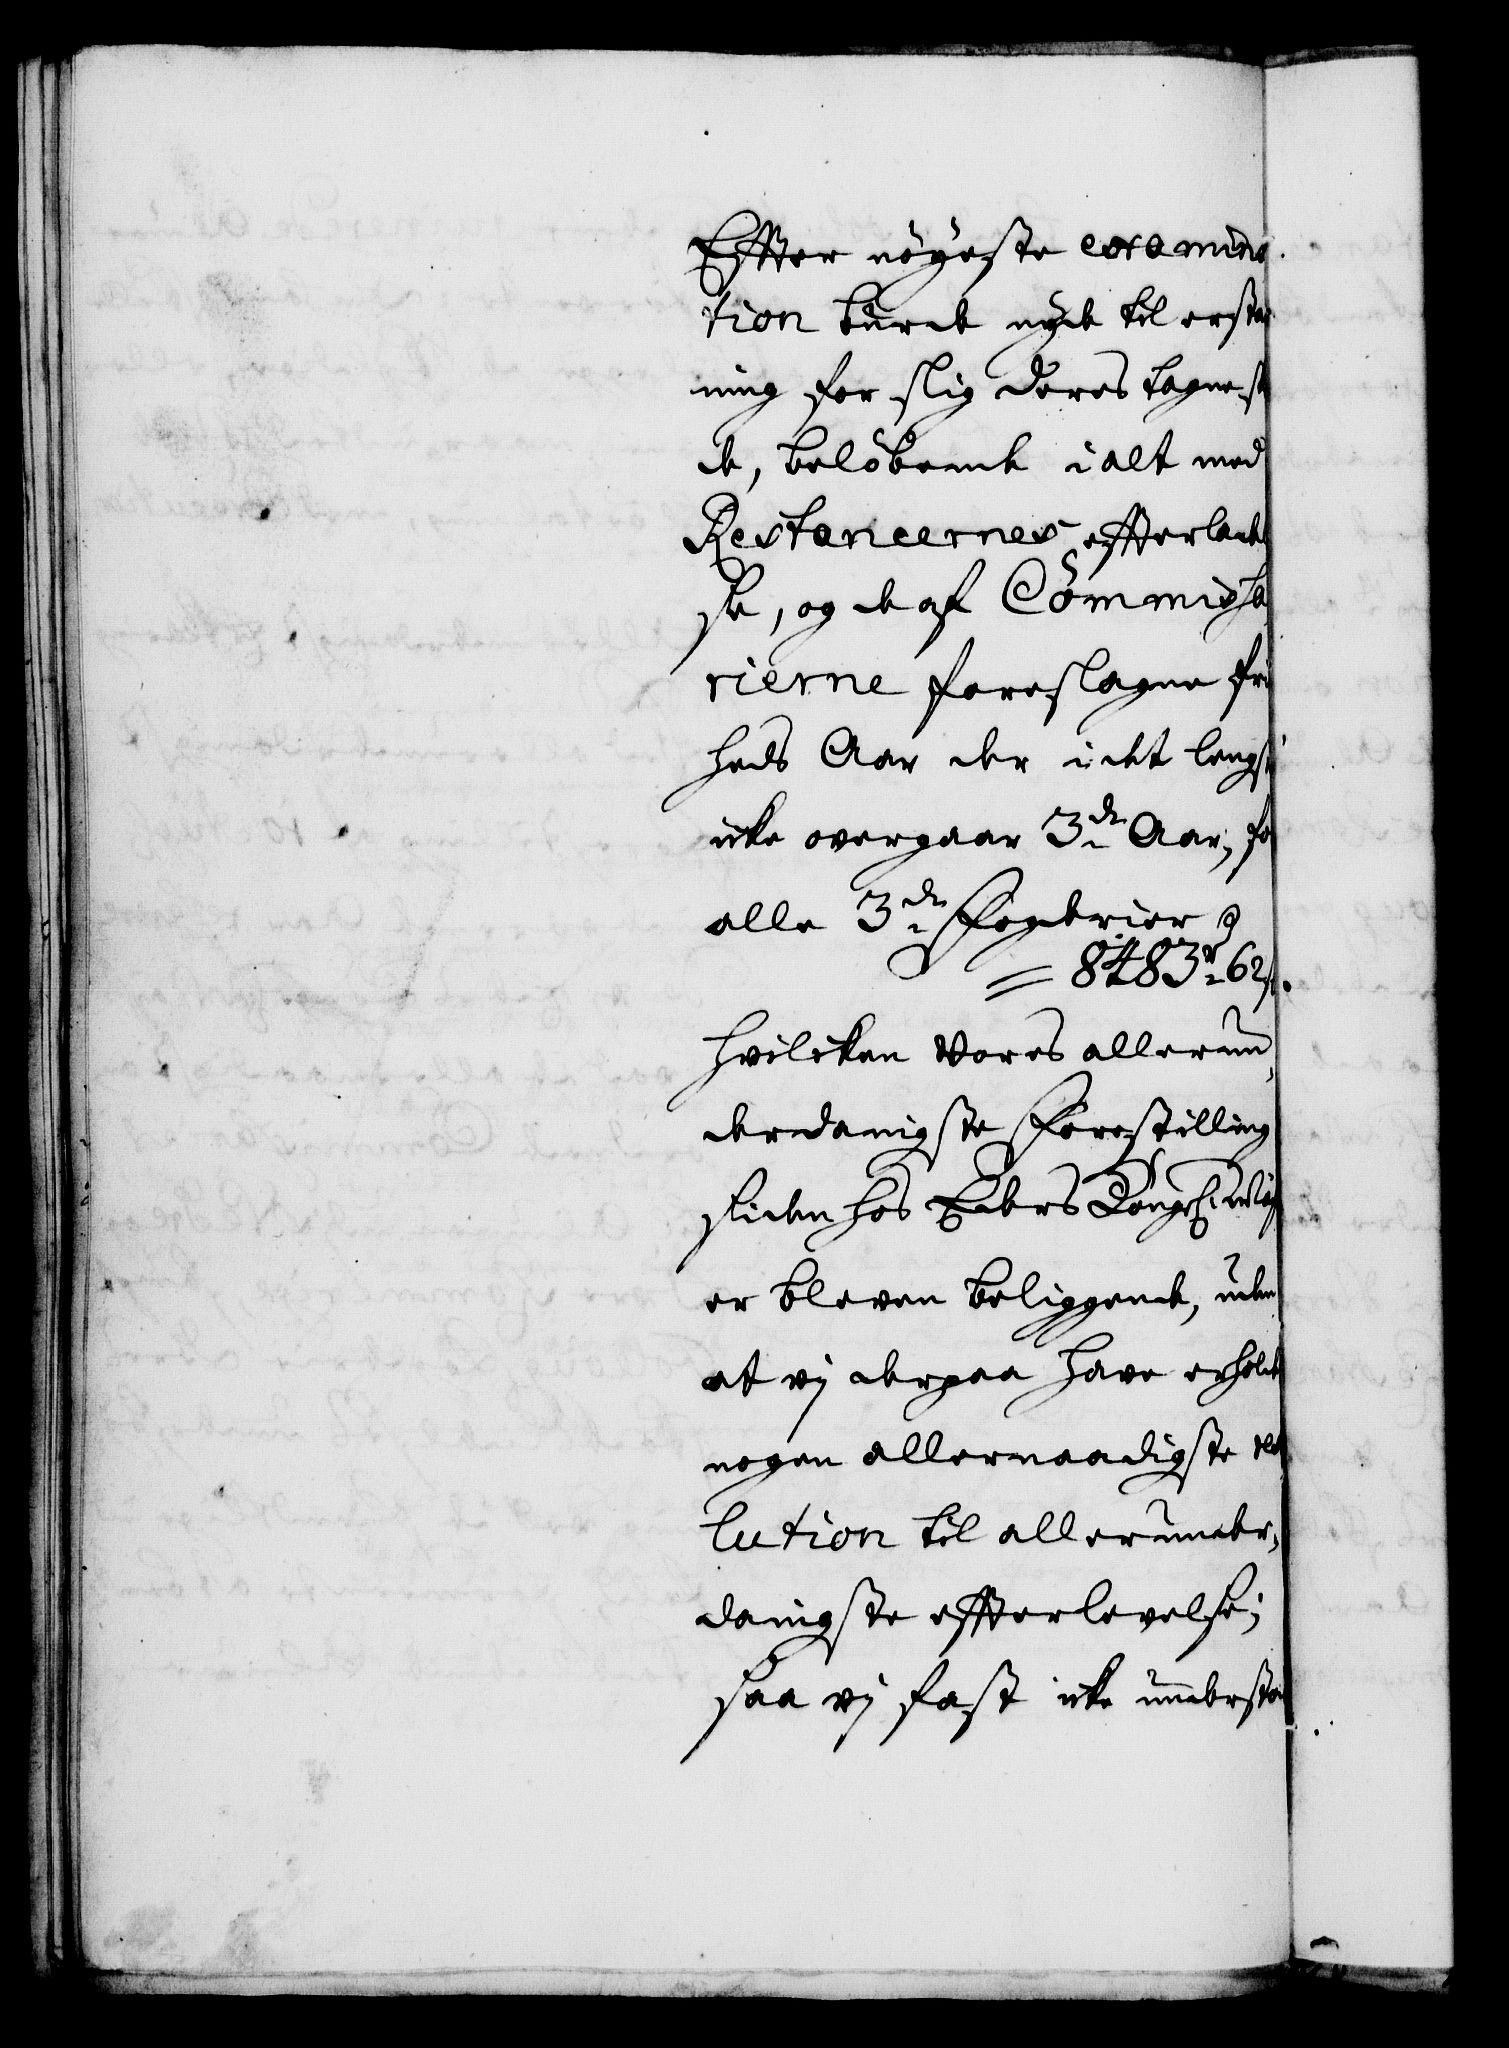 Effter nöyeste examina
tion burde nyde til erstat
ning for slig deres tagne ska
de, belöbende i alt med
Restancernes effterladel
se, og de af Commissa
rierne foreslagne fri
heds Aar der i det lengste
icke overgaar 3de Aar, for
alle 3de Fogderier
= 8483 r 62 s.
Hvilcken Vores allerun
derdanigste Forestilling
siden hos Eders Kongel: May
er bleven beliggende, uden
at vj derpaa have erholdet
nogen allernaadigste reso
lution til allerunder,
danigste effterlevelse;
saa vj fast icke understaa